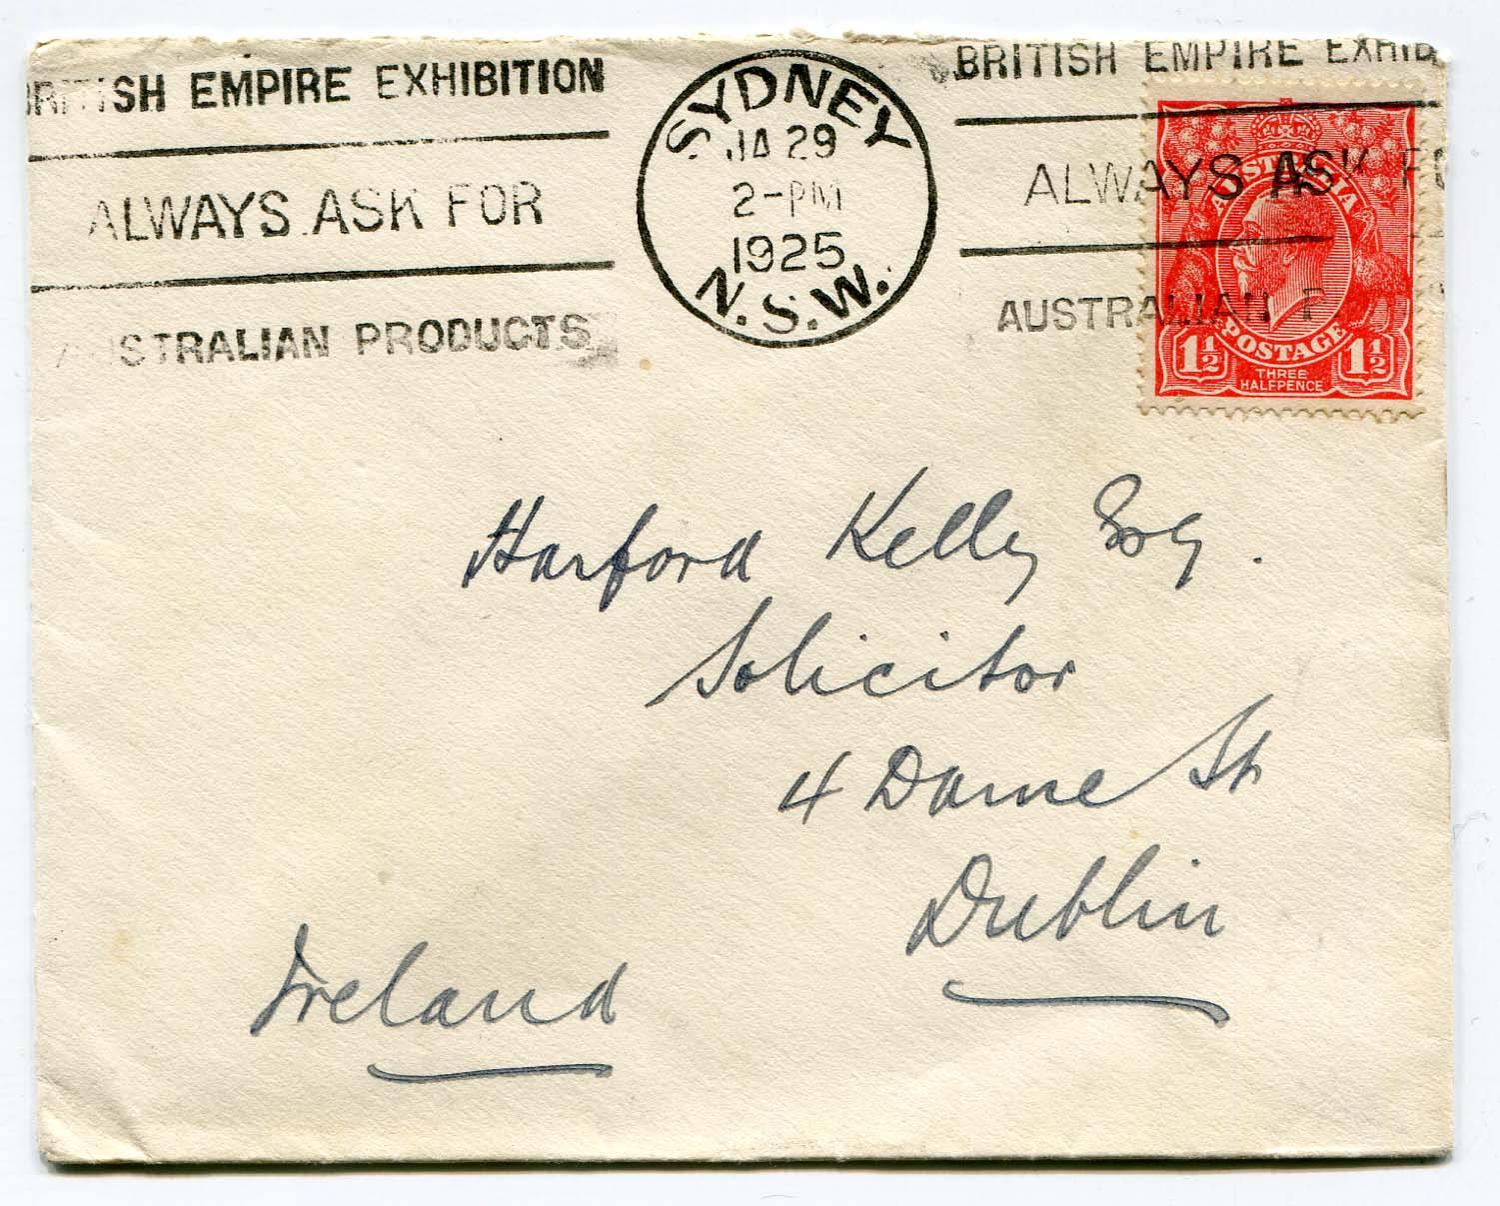 BRITISH EMPIRE EXHIBITION
ALWAYS ASK FOR
AUSTRALIAN PRODUCTS
SYDNEY
JA 29
2-PM
1925
N.S.W.
BRITISH EMPIRE EXHIB
ALWAYS ASK FO
AUSTRALIAN P
AUSTRALIA
POSTAGE
1½ 1½
THREE
HALFPENCE
Harford Kelly Esq.
Solicitor
4 Dame St
Dublin
Ireland